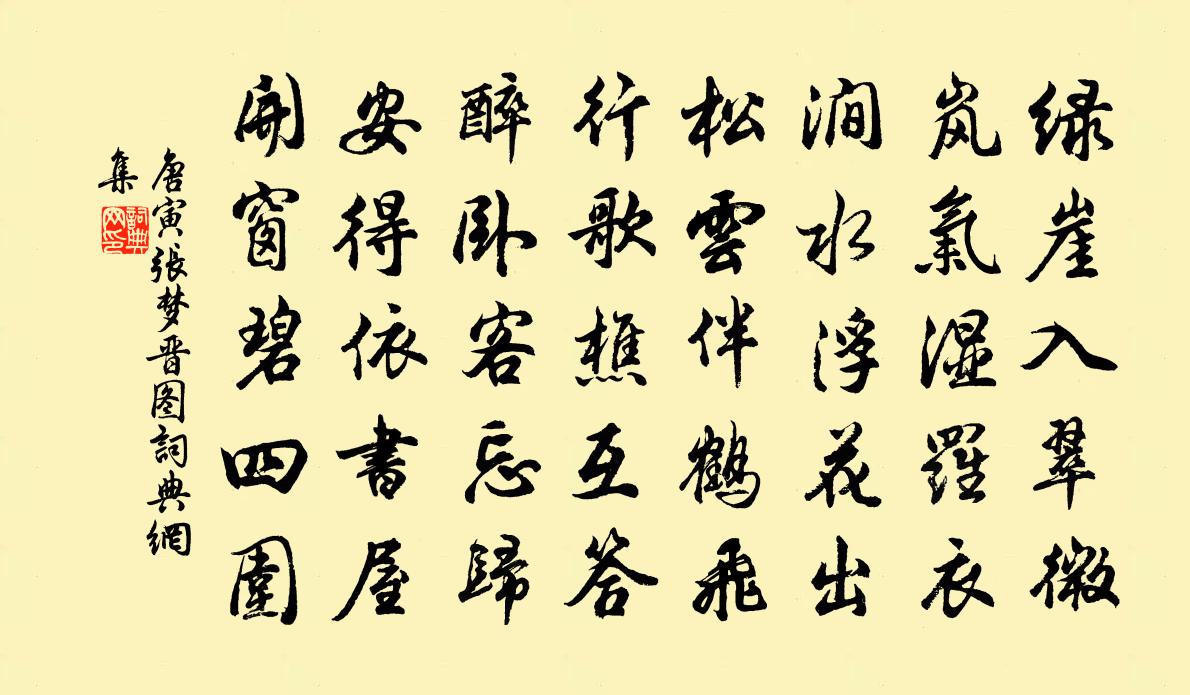 绿崖入翠微
岚氣湿羅衣
涧水浮花出
松雲伴鶴飛
行歌樵互答
醉卧客忘歸
安得依書屋
開窗碧四圍
唐寅張梦晋图詞典網
集
詞典
网印